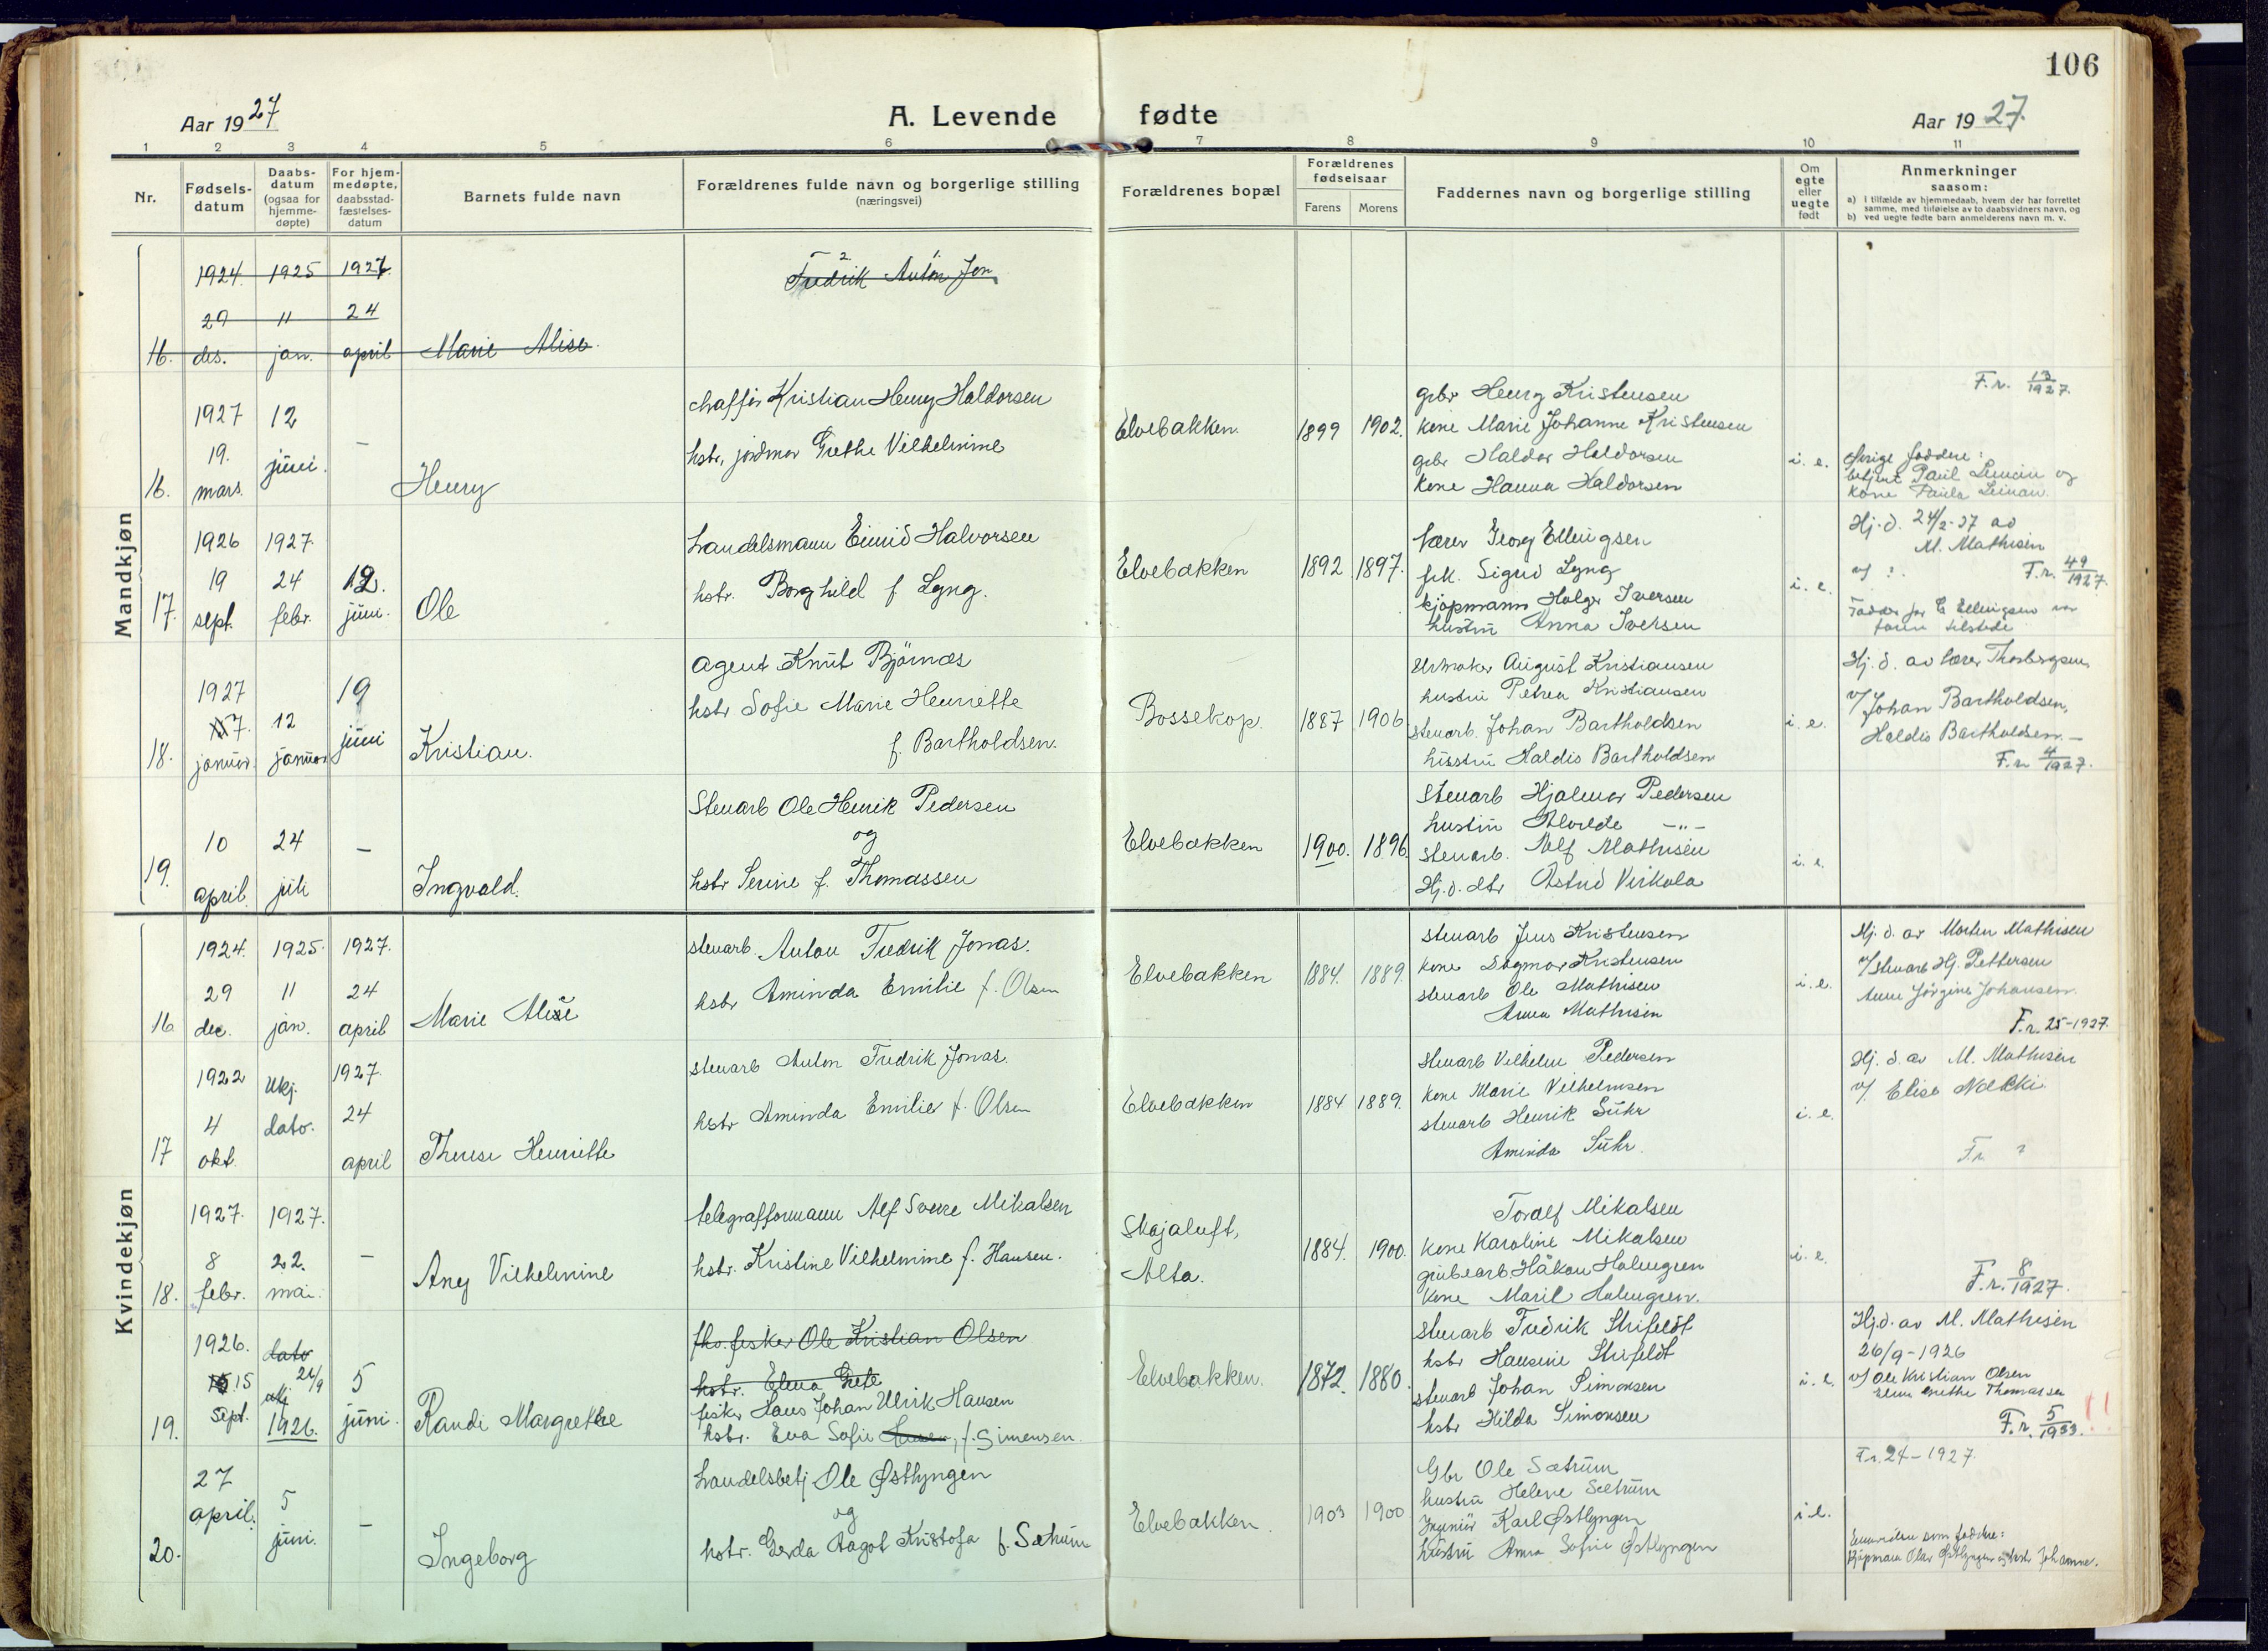 106
Aar 1927
A. Levende fødte
Aar 1927.
1 2 3 4 5 6 7 8 9 10 11
Nr.
Fødsels-
datum
Daabs-
datum
(ogsaa for
hjemme-
døpte)
For hjem-
medøpte,
daabsstad-
fæstelses-
datum
Barnets fulde navn
Forældrenes fulde navn og borgerlige stilling
(næringsvei)
Forældrenes bopæl
Forældrenes
fødselsaar
Farens Morens
Faddernes navn og borgerlige stilling
Om
egte
eller
uegte
født
Anmerkninger
saasom:
a) I tilfælde av hjemmedaab, hvem der har forrettet
samme, med tilføielse av to daabsvidners navn, og
b) ved uegte fødte barn anmelderens navn m. v.
Mandkjøn
16.
1924. 29 des.
1925 11 jan.
1927. 24 april
Marie Alise.
Fredrik Anton Jon
16.
1927 19. mars.
12 juni.
–
Henry
chaffør Kristian Henry Haldorsen
hstr, jordmor Grethe Vilhelmine
Elvebakken.
1899 1902.
gbr Henry Kristensen
kone Marie Johanne Kristensen
gbr Haldor Haldorsen
kone Hanna Haldorsen
i. e.
F.r. 13/1927.
Øvrige faddere:
betjent Paul og
kone Paula Leinan.
17.
1926 19 sept.
1927. 24 febr.
12. juni.
Ole
Handelsmann Eivind Halvorsen
hstr. Borghild f Lyng.
Elvebakken
1892 1897.
lærer Georg Ellingsen
frk. Sigrid Lyng
kjøpmann Holger Iversen
hustru Anna Iversen
i. e.
Hj.d. 24/2-27 av
M. Mathisen
v/ ?.
F.r. 49/1927.
Fadder for G Ellingsen var
faren tilstede
18.
1927 7. januar.
12 januar
19 juni
Kristian.
Agent Knut Bjørnæs
hstr Sofie Marie Henriette
f. Bartholdsen.
Bossekop.
1887 1906
Urmaker August Kristiansen
hustru Petrea Kristiansen
stenarb. Johan Bartholdsen
hustru Haldis Bartholdsen
i. e.
Hj. d. av lærer Thorbergsen
v/ Johan Bartholdsen,
Haldis Bartholdsen. –
F.r. 4/1927.
19.
10 april.
24 juli
–
Ingvald.
Stenarb Ole Henrik Pedersen
og
hstr Serine f. Thomassen
Elvebakken
1900. 1896.
Stenarb Hjalmar Pedersen
hustru Alvilde –"–
stenarb. Alf Mathisen
Hj.d. dtr Astrid Virkola
i. e.
Kvindekjøn
16
1924. 29 dec.
1925. 11 jan.
1927. 24 april
Marie Alise
stenarb. Anton Fredrik Jonas.
hstr Aminda Emilie f. Olsen
Elvebakken
1884. 1889.
stenarb Jens Kristensen
kone Dagmar Kristensen
stenarb Ole Mathisen
Anna Mathisen
i. e.
Hj. d. av Morten Mathisen
v/ stenarb Hj. Pettersen
Anne Jörgine Johansen.
F.r. 25-1927.
17
1922 4 okt.
Ukj. dato.
1927. 24 april
Therese Henriette
stenarb Anton Fredrik Jonas.
hstr Aminda Emilie f. Olsen
Elvebakken
1884 1889.
stenarb Vilhelm Pedersen
kone Marie Vilhelmsen
stenarb Henrik Suhr
Aminda Suhr.
i. e.
Hj. d. av M. Mathisen
v/ Elise Nækki.
F.r. ?
18.
1927. 8 febr.
1927. 22. mai.
–
Any Vilhelmine
telegrafformann Alf Sverre Mikalsen
hstr. Kristine Vilhelmine f. Hansen.
Skajaluft,
Alta.
1884. 1900.
Toralf Mikalsen
kone Karoline Mikalsen
grubearb Håkon Holmgren
kone Maril Holmgren.
i. e.
F.r. 8/1927.
19.
1926. 15 sept.
dato 26/9 1926.
5 juni.
Randi Margrethe
fho. fisker Ole Kristian Olsen
hstr. Elena Grete
fisker Hans Johan Ulrik Hansen
hstr. Eva Sofie Hansen, f. Simensen.
Elvebakken.
1872. 1880.
stenarb Fredrik Strifeldt
hstr Hansine Strifeldt
stenarb Johan Simonsen
hstr Hilda Simonsen
i. e.
Hj.d. av M. Mathisen
26/9-1926
v/ Ole Kristian Olsen
Elen Grethe Thomassen
F.r. 5/1933. !!
20.
27 april.
5 juni.
–
Ingeborg
Handelsbetj Ole Østlyngen
og
hstr. Gerda Aagot Kristofa f. Sætrum
Elvebakken.
1903 1900
Gbr Ole Sætrum
hustru Helene Sætrum
Ingeniör Karl Østlyngen
hustru Anna Sofie Østlyngen
i e.
F.r. 24-1927.
som faddere:
Kjøpmann Olav Østlyngen og hstr Johanne.